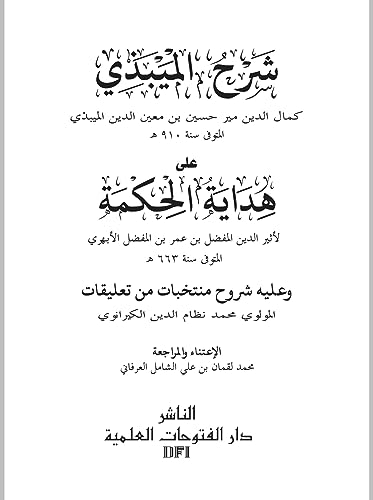 شرح الميبذي
كمال الدين مير حسين بن معين الدين الميبذي
المتوفى سنة ٩١٠ هـ
على
هداية الحكمة
لأثير الدين المفضل بن عمر بن المفضل الأبهري
المتوفى سنة ٦٦٣ هـ
وعليه شروح منتخبات من تعليقات
المولوي محمد نظام الدين الكيرانوي
الإعتناء والمراجعة
محمد لقمان بن علي الشامل العرفاني
الناشر
دار الفتوحات العلمية
DFI